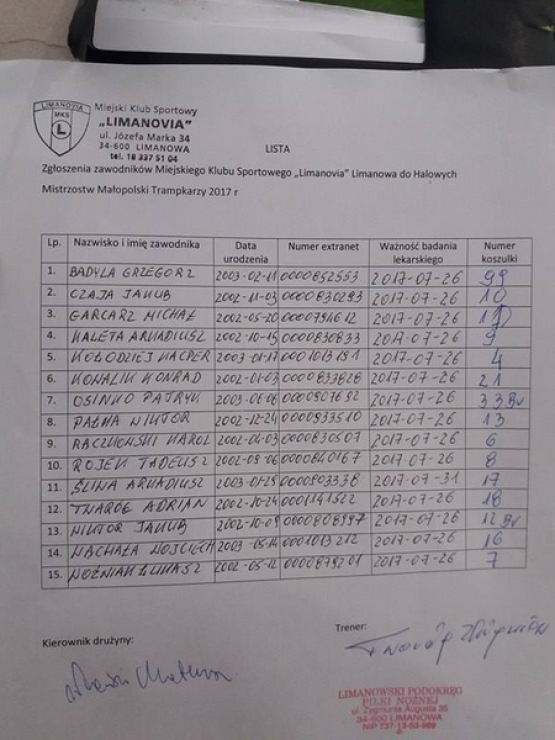 LIMANOVIA
MKS
L
Miejski Klub Sportowy
„LIMANOVIA”
ul. Józefa Marka 34
34-600 LIMANOWA
tel. 18 337 51 04
LISTA
Zgłoszenia zawodników Miejskiego Klubu Sportowego „Limanovia” Limanowa do Halowych
Mistrzostw Małopolski Trampkarzy 2017 r
Lp. Nazwisko i imię zawodnika Data urodzenia Numer extranet Ważność badania lekarskiego Numer koszulki
1. BADYLA GRZEGORZ 2003-02-11 0000852553 2017-07-26 99
2. CZAJA JAKUB 2002-11-03 0000830293 2017-07-26 10
3. GARCARZ MICHAŁ 2002-05-20 0000794612 2017-07-26
4. KALETA ARKADIUSZ 2002-10-15 0000830833 2017-07-26 9
5. KOŁODZIEJ KACPER 2003-01-17 0001013191 2017-07-26 4
6. KOWALIK KONRAD 2002-01-03 0000833828 2017-07-26 21
7. OSINKO PATRYK 2003-06-06 0000907692 2017-07-26 33 Br
8. PALKA WIKTOR 2002-12-24 0000933510 2017-07-26 13
9. RACZKOWSKI KAROL 2002-04-03 0000830507 2017-07-26 6
10. ROJEK TADEUSZ 2002-09-06 0000840167 2017-07-26 8
11. ŚLIWA ARKADIUSZ 2003-01-29 0000803338 2017-07-31 17
12. TWARÓG ADRIAN 2002-10-24 0001141522 2017-07-26 18
13. WIKTOR JAKUB 2002-10-09 0000808997 2017-07-26 12 Br
14. WACHAŁA WOJCIECH 2003-05-14 0001013212 2017-07-26 16
15. WOŹNIAK ŁUKASZ 2002-05-12 0000879201 2017-07-26 7
Kierownik drużyny:
Trener:
Twaróg Zbigniew
LIMANOWSKI PODOKRĘG
PIŁKI NOŻNEJ
ul. Zygmunta Augusta 35
34-600 LIMANOWA
NIP 737-13-53-989